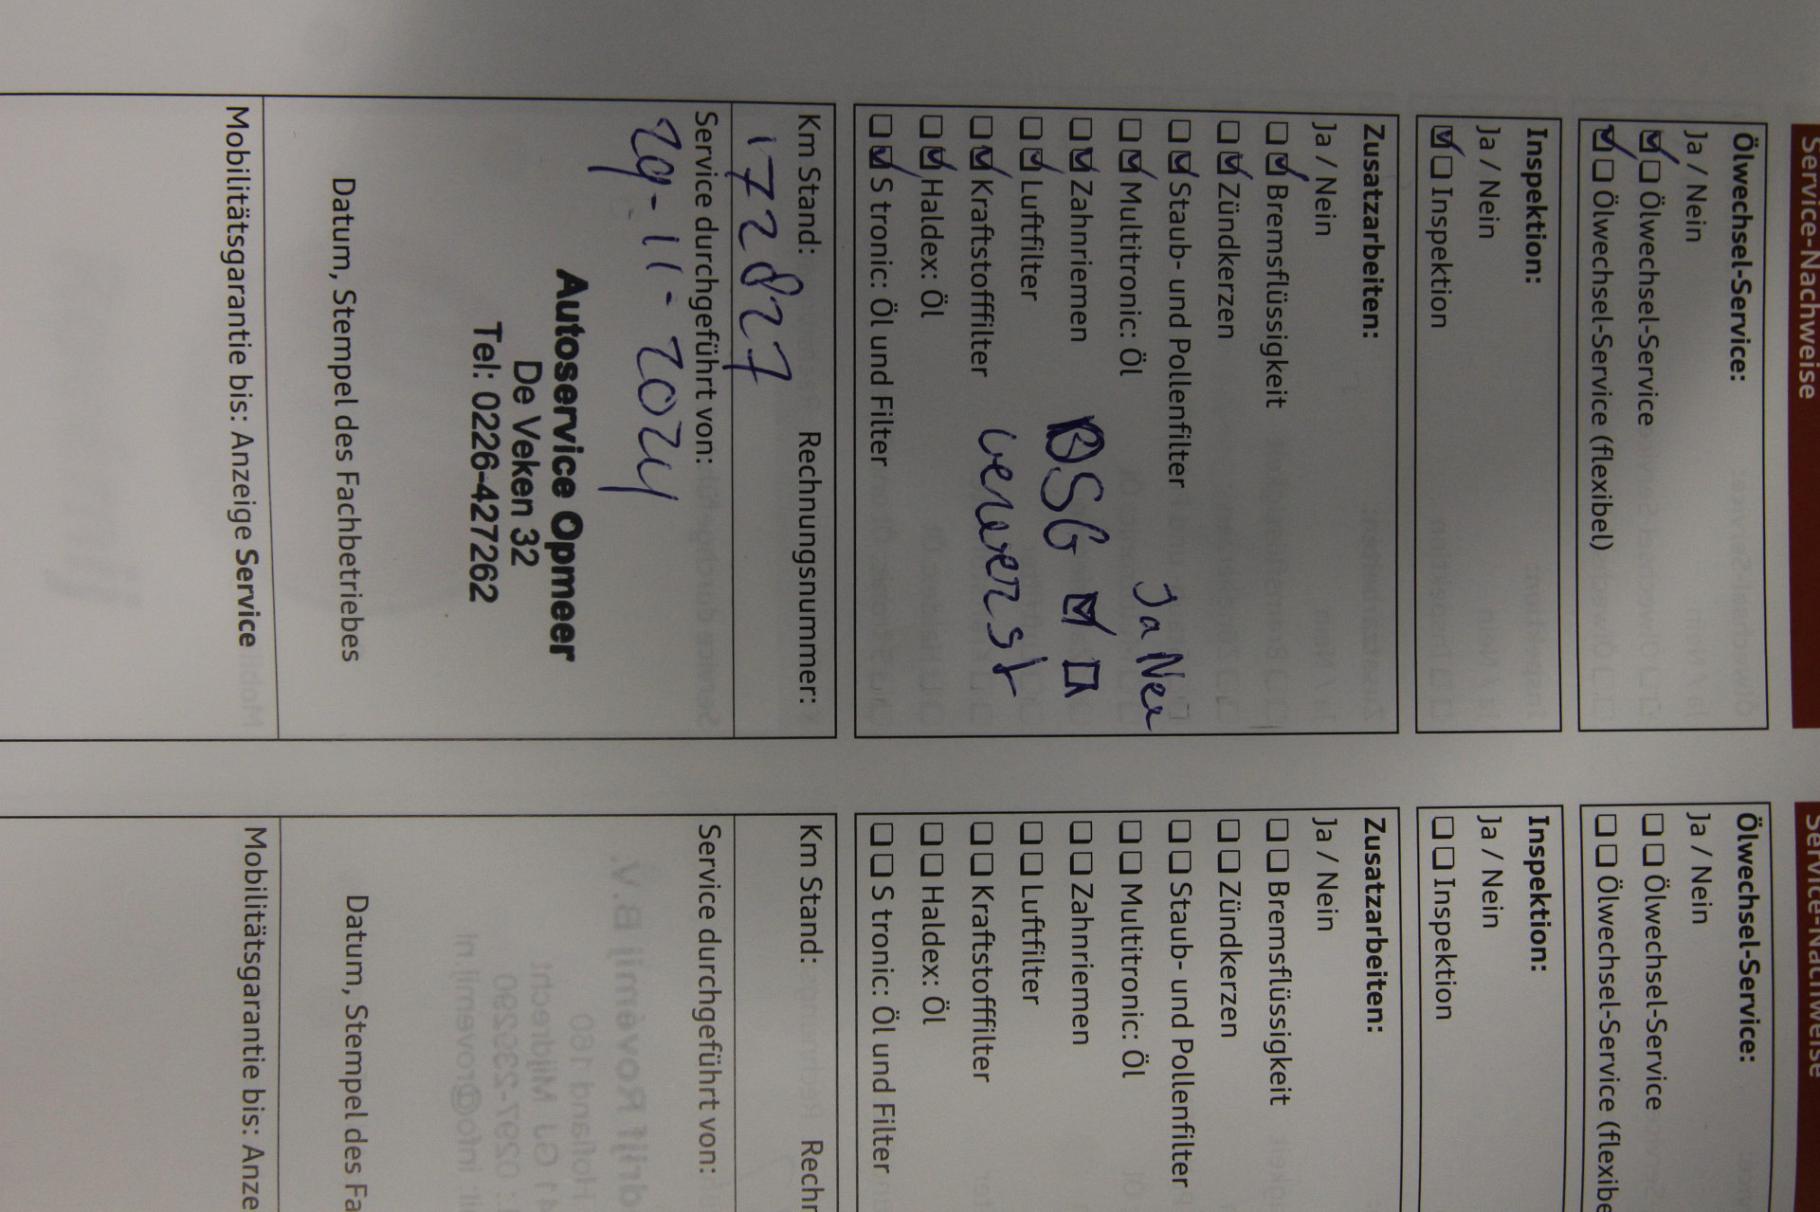 Service-Nachweise
Ölwechsel-Service:
Ja / Nein
☑☐ Ölwechsel-Service
☑☐ Ölwechsel-Service (flexibel)
Inspektion:
Ja / Nein
☑☐ Inspektion
Zusatzarbeiten:
Ja / Nein
☐☑ Bremsflüssigkeit
☐☑ Zündkerzen
☐☑ Staub- und Pollenfilter
☐☑ Multitronic: Öl
Ja Nei
☐☑ Zahnriemen
DSG ☑ ☐
☐☑ Luftfilter
ververst
☐☑ Kraftstofffilter
☐☑ Haldex: Öl
☐☑ S tronic: Öl und Filter
Km Stand: Rechnungsnummer:
172827
Service durchgeführt von:
29-11-2024
Autoservice Opmeer
De Veken 32
Tel: 0226-427262
Datum, Stempel des Fachbetriebes
Mobilitätsgarantie bis: Anzeige Service
Service-Nachweise
Ölwechsel-Service:
Ja / Nein
☐☐ Ölwechsel-Service
☐☐ Ölwechsel-Service (flexibe
Inspektion:
Ja / Nein
☐☐ Inspektion
Zusatzarbeiten:
Ja / Nein
☐☐ Bremsflüssigkeit
☐☐ Zündkerzen
☐☐ Staub- und Pollenfilter
☐☐ Multitronic: Öl
☐☐ Zahnriemen
☐☐ Luftfilter
☐☐ Kraftstofffilter
☐☐ Haldex: Öl
☐☐ S tronic: Öl und Filter
Km Stand: Rechn
Service durchgeführt von:
Datum, Stempel des Fa
Mobilitätsgarantie bis: Anze